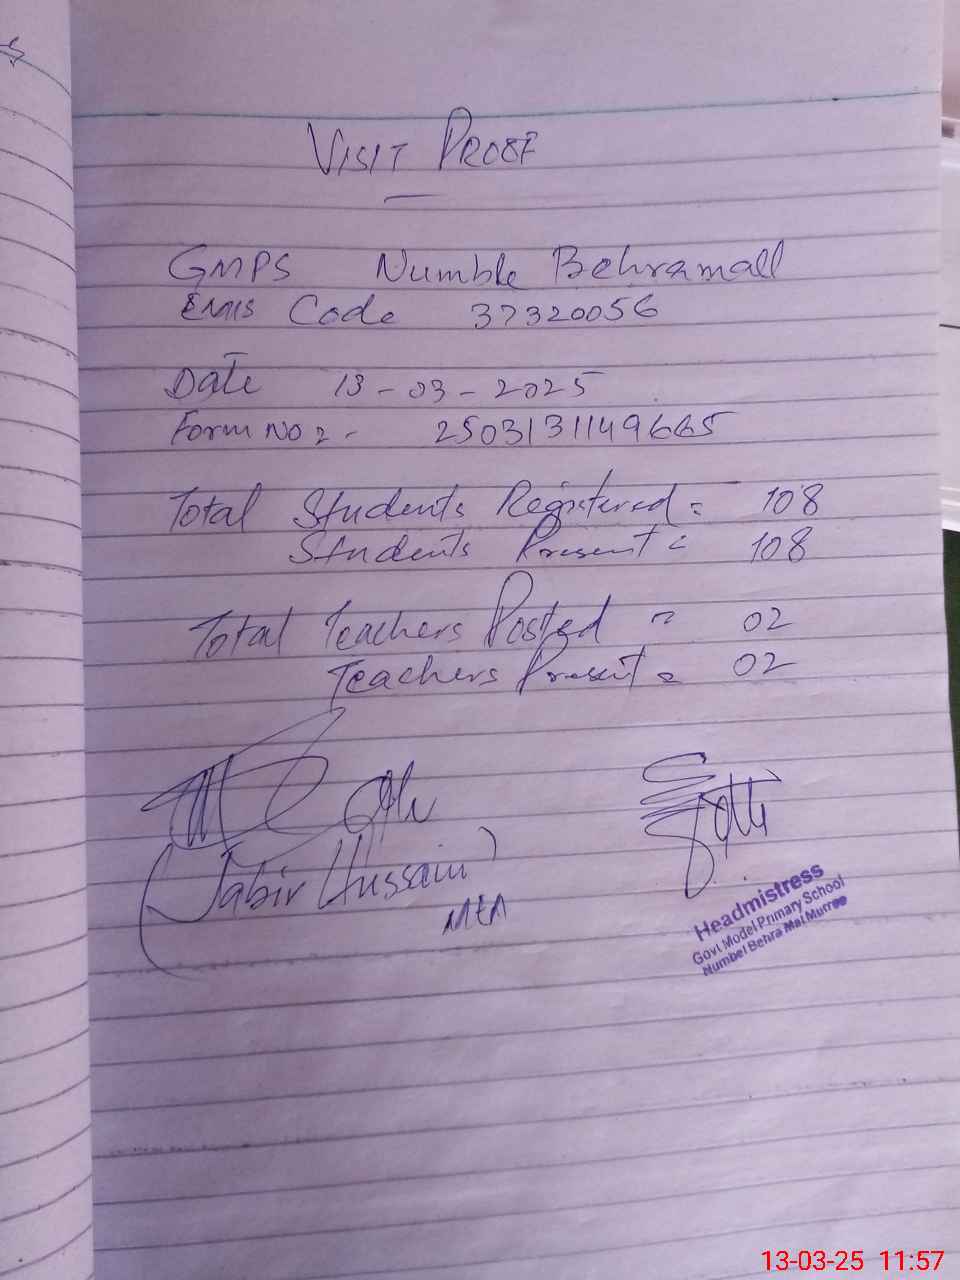 VISIT PROOF
GMPS Numble Behramall
EMIS Code 37320056
Date 13-03-2025
Form No :- 2503131149665
Total Students Registered = 108
Students Present = 108
Total Teachers Posted = 02
Teachers Present = 02
(Jabir Hussain)
MEA
Headmistress
Govt Model Primary School
Numbel Behra Mal Murree
13-03-25 11:57